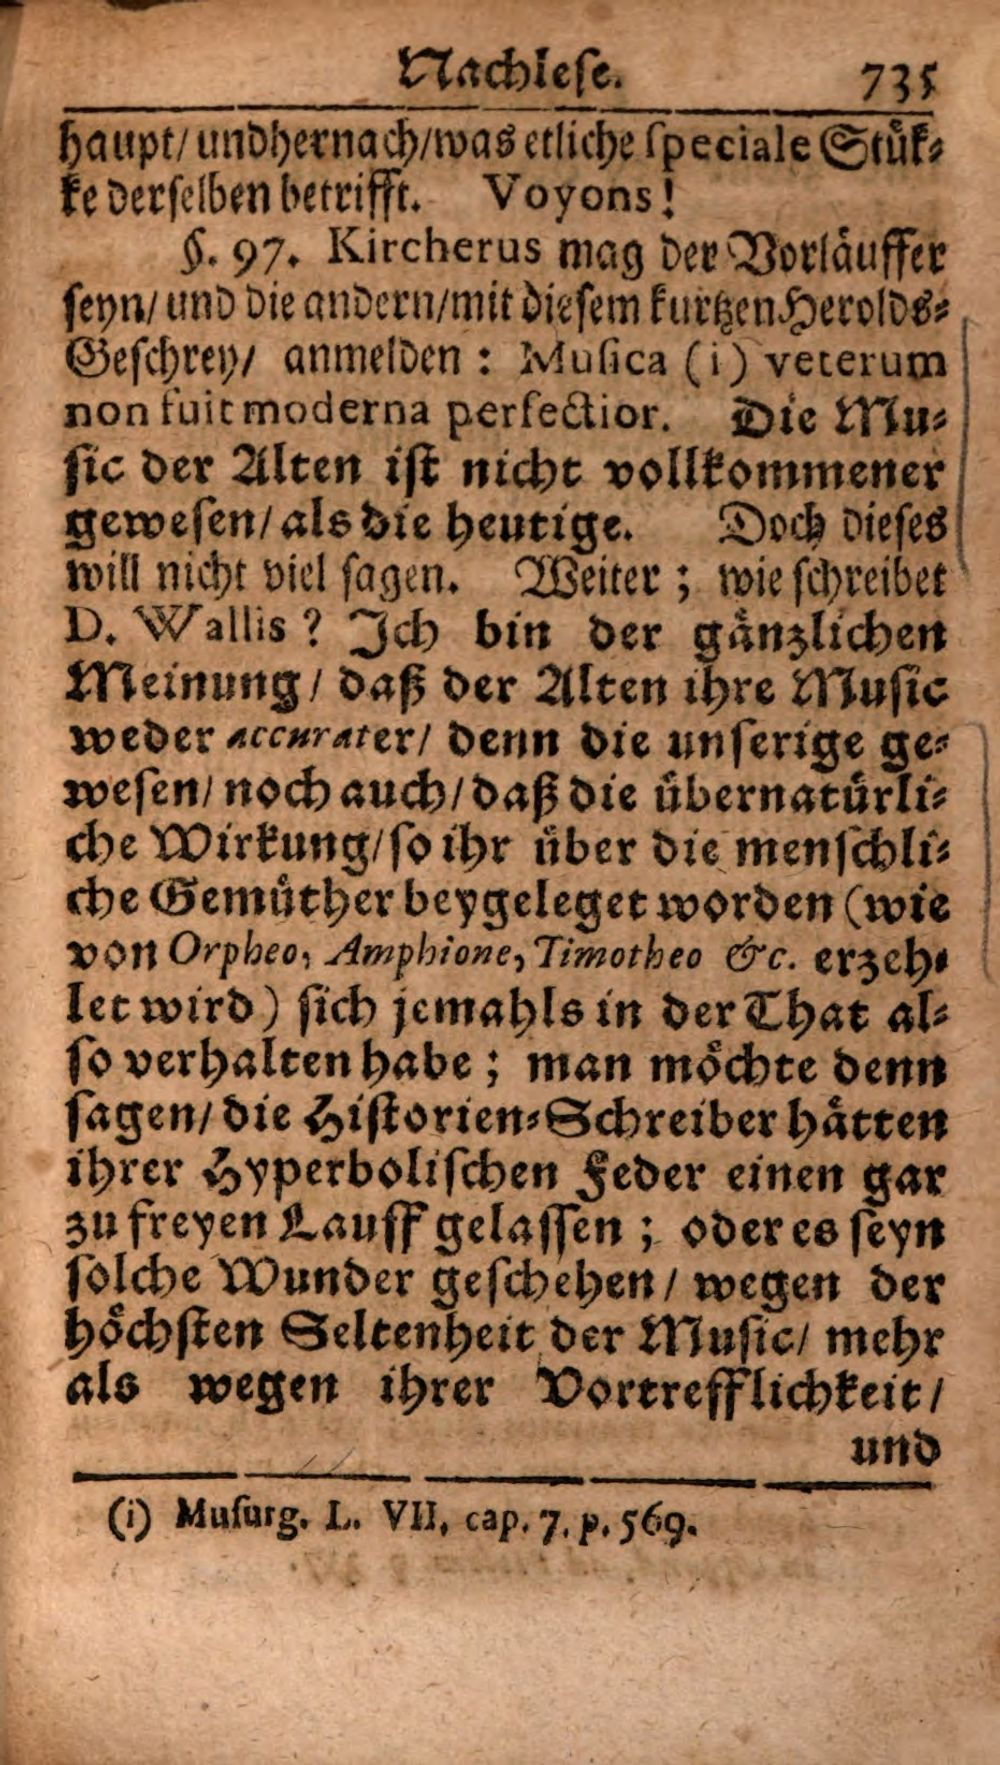 Nachlese. 735
haupt/ und hernach/ was etliche speciale Stük-
ke derselben betrifft. Voyons!
§. 97. Kircherus mag der Vorläuffer
seyn/ und die andern/ mit diesem kurtzen Herolds-
Geschrey/ anmelden : Musica (i) veterum
non fuit moderna perfectior. Die Mu-
sic der Alten ist nicht vollkommener
gewesen/ als die heutige. Doch dieses
will nicht viel sagen. Weiter ; wie schreibet
D. Wallis ? Ich bin der gäntzlichen
Meinung / daß der Alten ihre Music
weder accurater/ denn die unserige ge-
wesen/ noch auch/ daß die übernatürli-
che Wirkung/ so ihr über die menschli-
che Gemüther beygeleget worden (wie
von Orpheo, Amphione, Timotheo &c. erzeh-
let wird) sich jemahls in der That al-
so verhalten habe ; man möchte denn
sagen/ die Historien-Schreiber hätten
ihrer Hyperbolischen Feder einen gar
zu freyen Lauff gelassen ; oder es seyn
solche Wunder geschehen/ wegen der
höchsten Seltenheit der Music/ mehr
als wegen ihrer Vortrefflichkeit/
und
(i) Musurg. L. VII, cap. 7. p. 569.